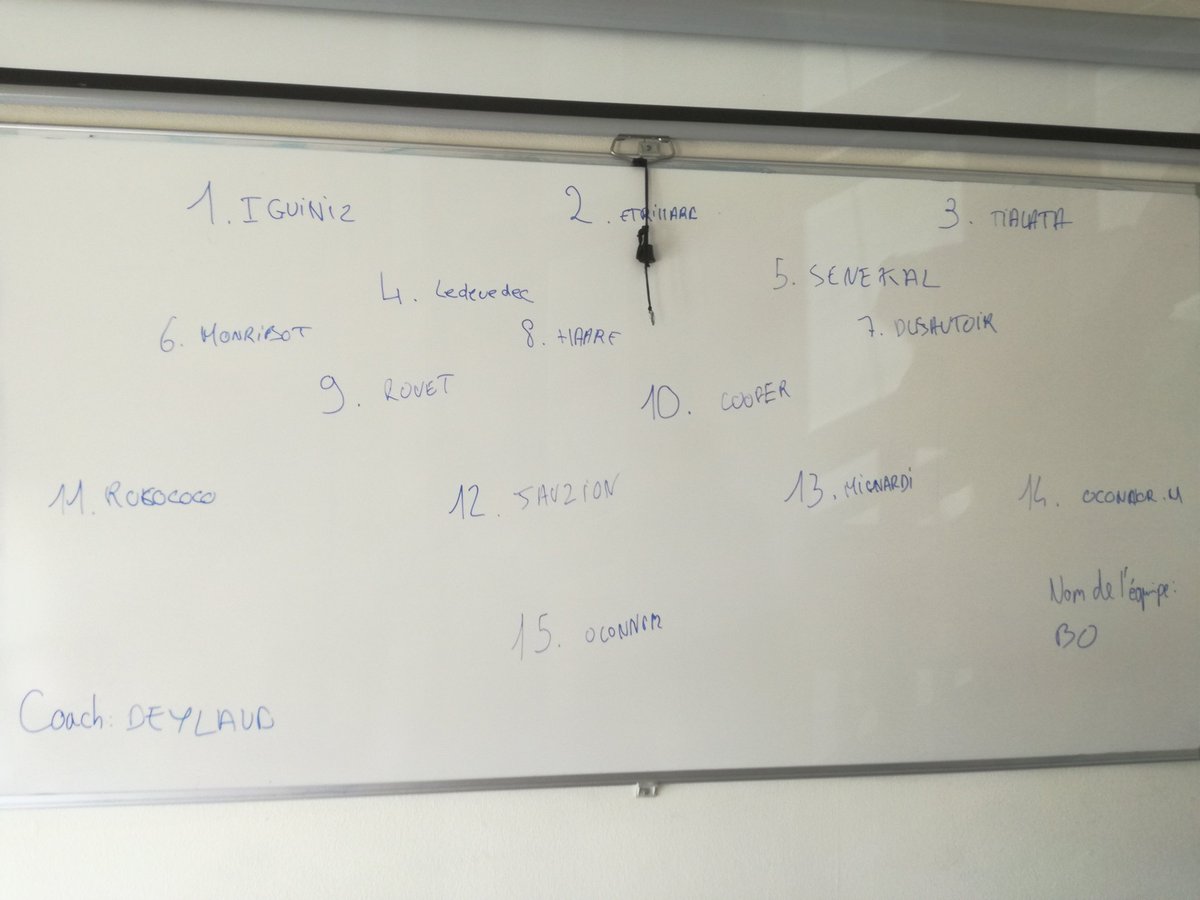 1. IGUINIZ
2. ETRILLARD
3. TIALATA
4. Ledevedec
5. SENEKAL
6. MONRIBOT
8. HAARE
7. DUSAUTOIR
9. ROUET
10. COOPER
11. ROKOCOCO
12. SAUZION
13. MIGNARDI
14. OCONNOR.M
15. OCONNOR
Nom de l'équipe:
BO
Coach: DEYLAUD